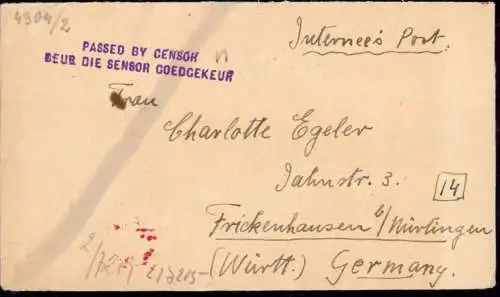 4304/2
PASSED BY CENSOR
DEUR DIE SENSOR GOEDGEKEUR
Internee's Post.
Frau
Charlotte Egeler
Jahnstr. 3.
14
Frickenhausen b/Nürtingen
(Württ.) Germany.